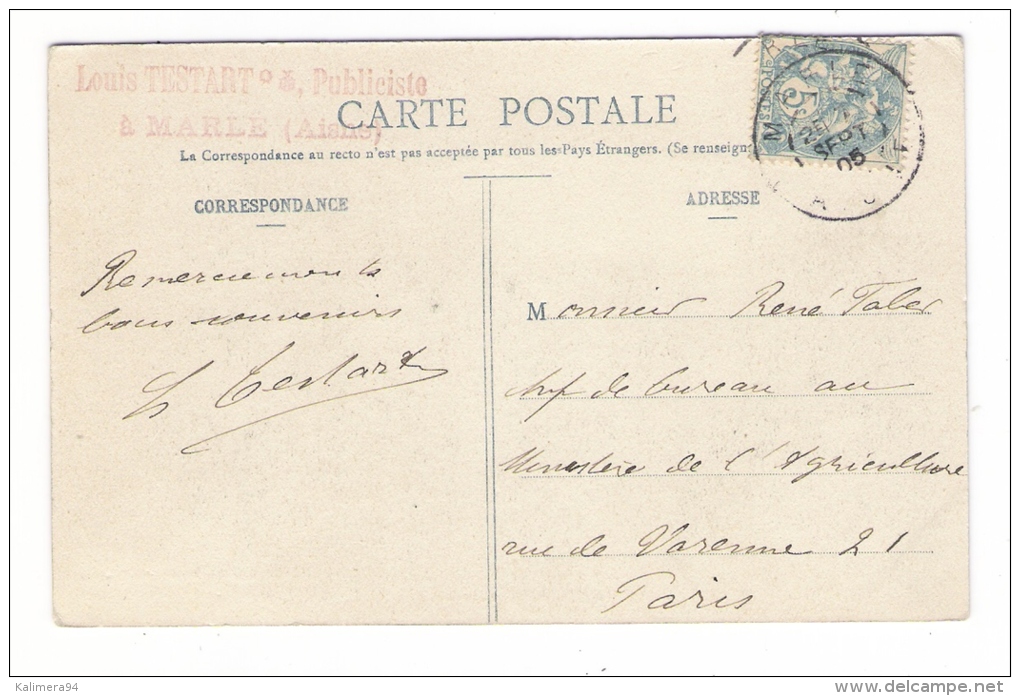 Louis TESTART, Publiciste
à MARLE (Aisne)
CARTE POSTALE
La Correspondance au recto n'est pas acceptée par tous les Pays Étrangers. (Se renseign
CORRESPONDANCE
ADRESSE
Remerciements
bons souvenirs
L Testart
Monsieur René
chef de bureau au
Ministère de l'Agriculture
rue de Varenne 21
Paris
POSTES
5
MARLE
SEPT
05
AISNE
Kalimera94
www.delcampe.net